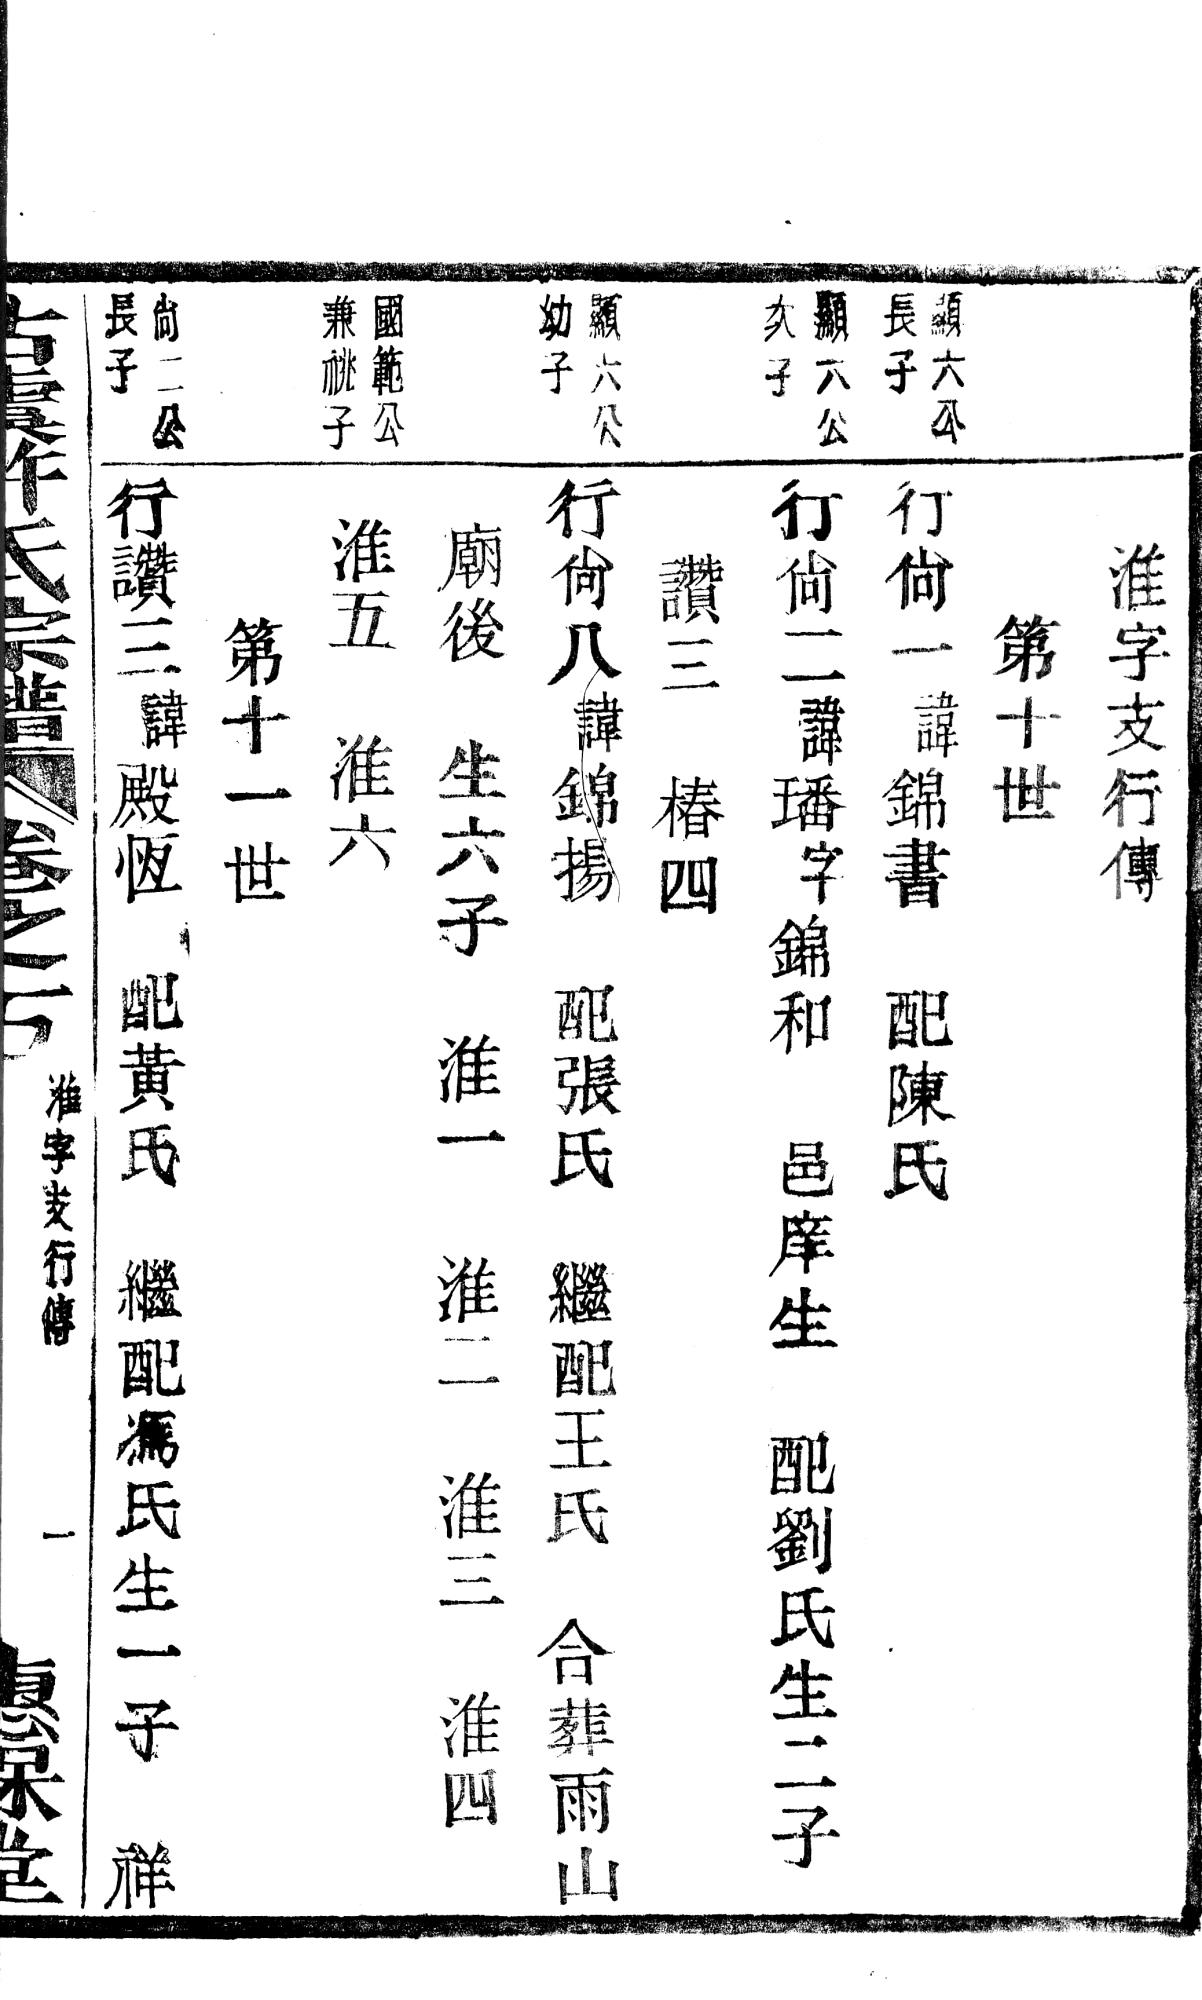 淮字支行傳
第十世
顯六公
長子
行尙一諱錦書 配陳氏
顯六公
次子
行尙二諱璠字錦和 邑庠生 配劉氏生二子
讚三 椿四
顯六公
幼子
行尙八諱錦揚 配張氏 繼配王氏 合葬雨山
廟後 生六子 淮一 淮二 淮三 淮四
國範公
兼祧子
淮五 淮六
第十一世
尙二公
長子
行讚三諱殿恆 配黃氏 繼配馮氏生一子 祥
古虞許氏宗譜 卷之
淮字支行傳
一
堂